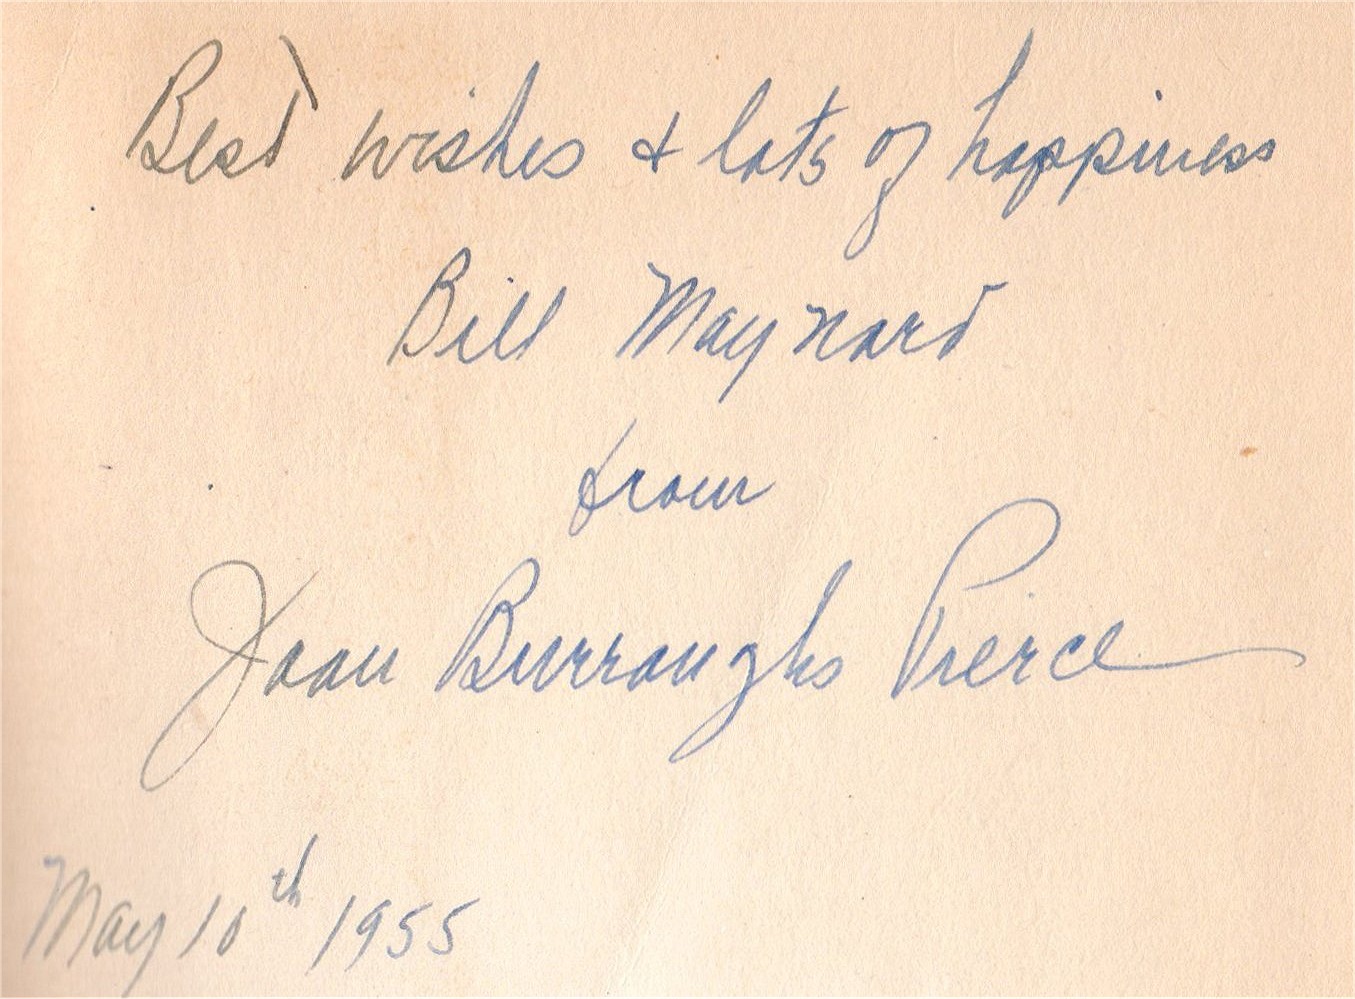 Best wishes & lots of happiness
Bill Maynard
from
Joan Burroughs Pierce
May 10th 1955